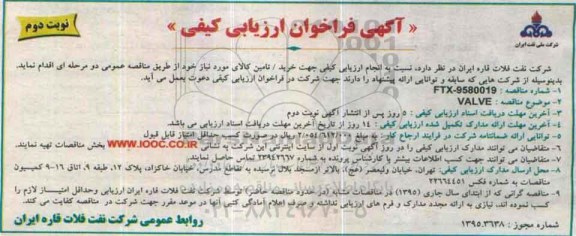 « آگهی فراخوان ارزیابی کیفی »
نوبت دوم
شرکت ملی نفت ایران
شرکت نفت فلات قاره ایران در نظر دارد، نسبت به انجام ارزیابی کیفی جهت خرید / تامین کالای مورد نیاز خود از طریق مناقصه عمومی دو مرحله ای اقدام نماید.
بدینوسیله از شرکت هایی که سابقه و توانایی ارائه پیشنهاد را دارند جهت شرکت در فراخوان ارزیابی کیفی دعوت بعمل می آید.
۱- شماره مناقصه : FTX-9580019
۲- موضوع مناقصه : VALVE
۳- آخرین مهلت دریافت اسناد ارزیابی کیفی : ۵ روز پس از انتشار آگهی نوبت دوم
۴- آخرین مهلت ارائه مدارک تکمیل شده ارزیابی کیفی : ۱۴ روز از تاریخ آخرین مهلت دریافت اسناد ارزیابی می باشد.
۵- توانایی ارائه ضمانتنامه شرکت در فرایند ارجاع کار به مبلغ ۲/۰۵۴/۶۱۲/۰۰۰ ریال در صورت کسب حداقل امتیاز قابل قبول
۶- متقاضیان می توانند مدارک ارزیابی کیفی را در روز آگهی نوبت اول از سایت اینترنتی این شرکت به نشانی WWW.IOOC.CO.IR بخش مناقصات تهیه نمایند.
۷- متقاضیان می توانند جهت کسب اطلاعات بیشتر با کارشناس پرونده به شماره ۲۳۹۴۲۶۶۷ تماس حاصل نمایند.
۸- محل ارسال مدارک ارزیابی کیفی: تهران، خیابان ولیعصر (عج)، بالاتر ازمسجد بلال نرسیده به تقاطع مدرس، خیابان خاکزاد، پلاک ۱۲، طبقه ۹، اتاق ۱۶-۹ کمیسیون
مناقصات به شماره فکس ۲۲۶۶۴۴۵۱
۹- مناقصه گرانی که از ابتدای سال جاری (۱۳۹۵) در مناقصات مشابه (در حدود مناقصه حاضر) توسط شرکت نفت فلات قاره ایران ارزیابی وحداقل امتیاز لازم را
کسب نموده اند، نیازی به ارائه مجدد مدارک و فرم های ارزیابی نداشته و صرف اعلام آمادگی کتبی آنها در موعد مقرر جهت شرکت در مناقصه کفایت می کند.
شماره مجوز : ۱۳۹۵.۳۶۳۸
روابط عمومی شرکت نفت فلات قاره ایران
۰۲۱-۸۸۳۴۹۶۷۰-۵